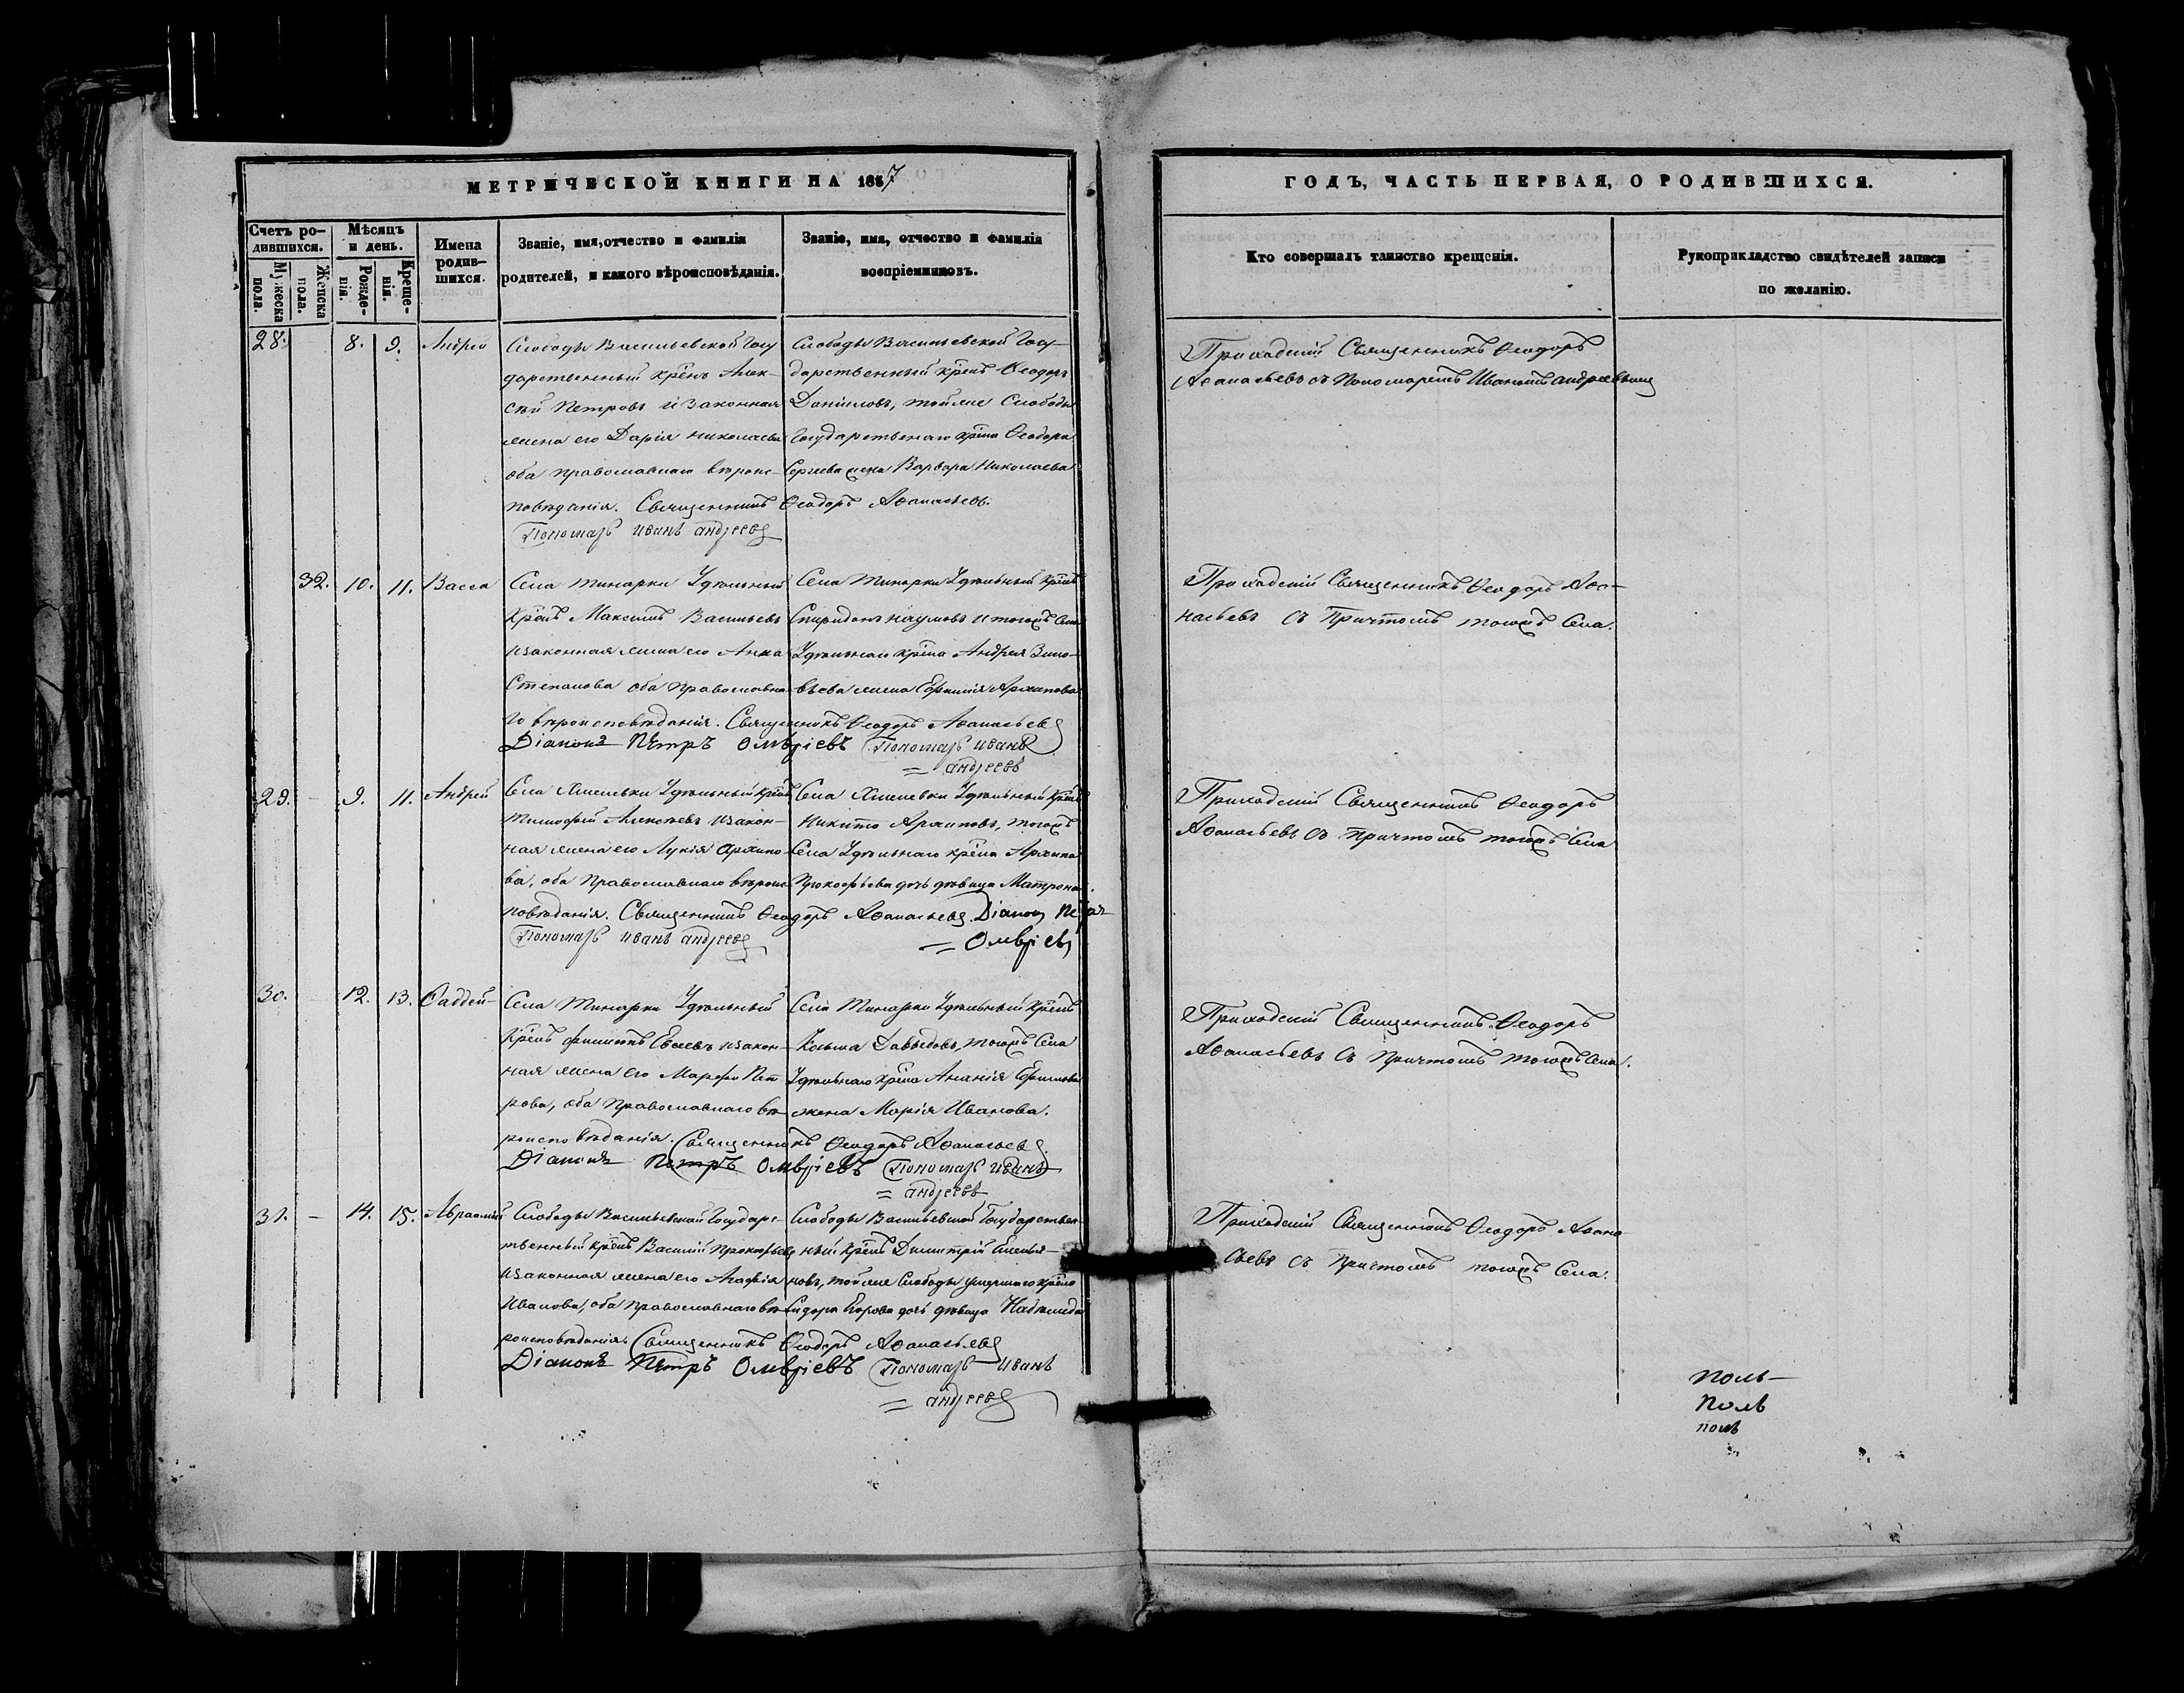 МЕТРИЧЕСКОЙ КНИГИ НА 1857
ГОДЪ, ЧАСТЬ ПЕРВАЯ, О РОДИВШИХСЯ.
Счетъ ро-
дившихся.
Мужеска
пола.
Женска
пола.
Мѣсяцъ
и день.
Рожде-
нія.
Креще-
нія.
Имена
родив-
шихся.
Званіе, имя, отчество и фамилія
родителей, и какого вѣроисповѣданія.
Званіе, имя, отчество и фамилія
воспріемниковъ.
Кто совершалъ таинство крещенія.
Рукоприкладство свидѣтелей записи
по желанію.
28.
8.
9.
Андрей
Слободы Васильевской Госу
дарственный крѣнъ Алек-
сѣй Петровъ и законная
жена его Дарія Николаева
оба православнаго вѣроис-
повѣданія. Священникъ Ѳеодоръ Аѳанасьевъ.
Пономарь Иванъ Андреевъ
Слободы Васильевской Госу-
дарственный крѣнъ Ѳеодоръ
Даниловъ, тойже Слободы
Государственаго крѣна Ѳеодора
Сергѣева жена Варвара Николаева
Приходскій Священникъ Ѳеодоръ
Аѳанасьевъ съ Пономаремъ Иваномъ Андреевымъ
32.
10.
11.
Васса
Села Тинарки Удѣльный
крѣнъ Максимъ Васильевъ
и законная жена его Анна
Степанова оба православна
го вѣроисповѣданія. Священникъ Ѳеодоръ Аѳанасьевъ
Діаконъ Петръ Омвріевъ Пономарь Иванъ
= Андреевъ
Села Тинарки Удѣльный крѣнъ
Спиридонъ Наумовъ и тогожъ Села
Удѣльнаго крѣна Андрея Зино-
вьева жена Евфимія Архипова
Приходскій Священникъ Ѳеодоръ Аѳа-
насьевъ съ Причтомъ тогожъ Села.
29.
9.
11.
Андрей
Села Удѣльный крѣнъ
Тимофей Алексѣевъ и закон-
ная жена его Лукія Архипо
ва, оба Православнаго вѣроис
повѣданія. Священникъ Ѳеодоръ Аѳанасьевъ. Діаконъ Петръ
Пономарь Иванъ Андреевъ = Омвріевъ
Села Удѣльный крѣнъ
Никита Архиповъ, тогожъ
Села Удѣльнаго крѣна Архипа
Прокофьева дочь дѣвица Матрона.
Приходскій Священникъ Ѳеодоръ
Аѳанасьевъ съ Причтомъ тогожъ Села
30.
12.
13.
Ѳаддей
Села Тинарки Удѣльный
Крѣнъ Филиппъ и закон-
ная жена его Марфа Пет
рова, оба Православнаго вѣ-
роисповѣданія. Священникъ Ѳеодоръ Аѳанасьевъ.
Діаконъ Петръ Омвріевъ Пономарь Иванъ
= Андреевъ
Села Тинарки Удѣльный крѣнъ
Козьма Давыдовъ, тогожъ Села
Удѣльнаго крѣна Ананія Ефимова
жена Марія Иванова.
Приходскій Священникъ Ѳеодоръ
Аѳанасьевъ съ Причтомъ тогожъ Села.
31.
14.
15.
Авраамій
Слободы Васильевской Государс-
твенный крѣнъ Василій Прокофьевъ
и законная жена его Агафія
Иванова, оба православнаго вѣ-
роисповѣданія Священникъ Ѳеодоръ Аѳанасьевъ
Діаконъ Петръ Омвріевъ Пономарь Иванъ
= Андреевъ
Слободы Васильевской Государствен-
ный крѣнъ Димитрій Емелья-
новъ, тойже Слободы умершаго крѣна
Сидора Егорова дочь дѣвица
Приходскій Священникъ Ѳеодоръ Аѳана
сьевъ съ Причтомъ тогожъ Села.
Поль
Поль
поль